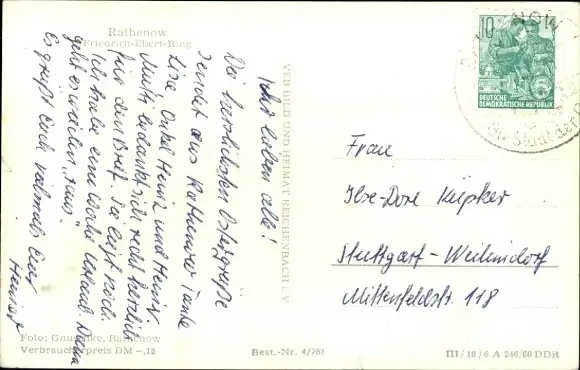 Rathenow
Friedrich-Ebert-Ring
Ihr lieben alle!
Die herzlichsten Ostergrüße
sendet aus Rathenow Tante
Lisa, Onkel Heinz und Heinz.
Mutti bedankt sich recht herzlich
für den Brief. Sie liegt noch.
Ich habe eine Woche Urlaub. Dann
geht es wieder "raus".
Es grüßt Euch vielmals Euer
Foto: Gnuschke, Rathenow
Verbraucherpreis DM -,15
VEB BILD UND HEIMAT REICHENBACH i. V.
Best.-Nr. 4/781
10
DEUTSCHE
DEMOKRATISCHE REPUBLIK
NOW
Frau
Ilse-Dore Küpker
Stuttgart-Weilimdorf
Mittenfeldstr. 118
III/18/6 A 246/60 DDR